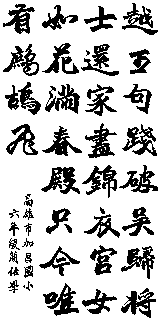 越王句踐破吳歸將
士還家盡錦衣宮女
如花滿春殿只今唯
有鷓鴣飛
高雄市加昌國小
六年級簡